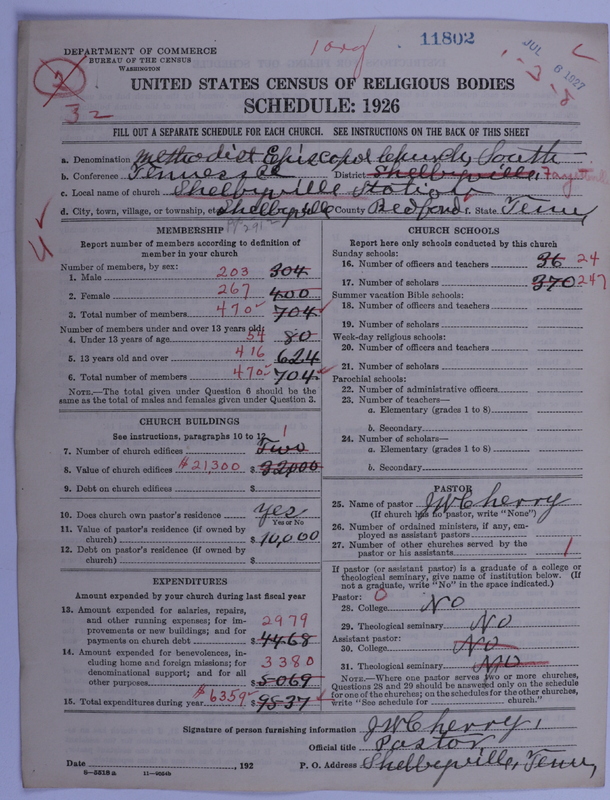 DEPARTMENT OF COMMERCE
BUREAU OF THE CENSUS
WASHINGTON
1 org
11802
JUL 6 1927
1-3-8
2
32
UNITED STATES CENSUS OF RELIGIOUS BODIES
SCHEDULE: 1926
FILL OUT A SEPARATE SCHEDULE FOR EACH CHURCH. SEE INSTRUCTIONS ON THE BACK OF THIS SHEET
a. Denomination Methodist Episcopal Church, South
b. Conference Tennessee District Shelbyville,
c. Local name of church Shelbyville Station
d. City, town, village, or township, etc Shelbyville County Bedford f. State Tenn,
MEMBERSHIP
Report number of members according to definition of
member in your church
Number of members, by sex:
1. Male 203 304
2. Female 267 400
3. Total number of members 470 704
Number of members under and over 13 years old:
4. Under 13 years of age 54 80
5. 13 years old and over 416 624
6. Total number of members 470 704
NOTE.—The total given under Question 6 should be the
same as the total of males and females given under Question 3.
CHURCH BUILDINGS
See instructions, paragraphs 10 to 12
7. Number of church edifices 1 Two
8. Value of church edifices $21,300 $ 32,000
9. Debt on church edifices $
10. Does church own pastor's residence? Yes
Yes or No
11. Value of pastor's residence (if owned by
church) $ 10,000
12. Debt on pastor's residence (if owned by
church) $
EXPENDITURES
Amount expended by your church during last fiscal year
13. Amount expended for salaries, repairs,
and other running expenses; for im-
provements or new buildings; and for
payments on church debt 2979 $ 4468
14. Amount expended for benevolences, in-
cluding home and foreign missions; for
denominational support; and for all
other purposes 3380 $ 5069
15. Total expenditures during year $6359 $ 9537
CHURCH SCHOOLS
Report here only schools conducted by this church
Sunday schools:
16. Number of officers and teachers 36 24
17. Number of scholars 370 247
Summer vacation Bible schools:
18. Number of officers and teachers
19. Number of scholars
Week-day religious schools:
20. Number of officers and teachers
21. Number of scholars
Parochial schools:
22. Number of administrative officers
23. Number of teachers—
a. Elementary (grades 1 to 8)
b. Secondary
24. Number of scholars—
a. Elementary (grades 1 to 8)
b. Secondary
PASTOR
25. Name of pastor J W Cherry
(If church has no pastor, write "None")
26. Number of ordained ministers, if any, em-
ployed as assistant pastors
27. Number of other churches served by the
pastor or his assistants 1
If pastor (or assistant pastor) is a graduate of a college or
theological seminary, give name of institution below. (If
not a graduate, write "No" in the space indicated.)
Pastor: 0
28. College No
29. Theological seminary No
Assistant pastor:
30. College No
31. Theological seminary No
NOTE.—Where one pastor serves two or more churches,
Questions 28 and 29 should be answered only on the schedule
for one of the churches; on the schedules for the other churches,
write "See schedule for church."
Signature of person furnishing information J W Cherry,
Official title Pastor
Date , 192 P. O. Address Shelbyville, Tenn,
8—5518a 11—9554b